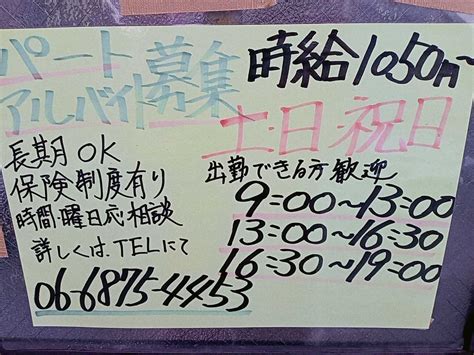 パート
アルバイト募集
時給1050円～
土・日・祝日
出勤できる方歓迎
9:00～13:00
13:00～16:30
16:30～19:00
長期OK
保険制度有り
時間・曜日応相談
詳しくは、TELにて
06-6875-4453